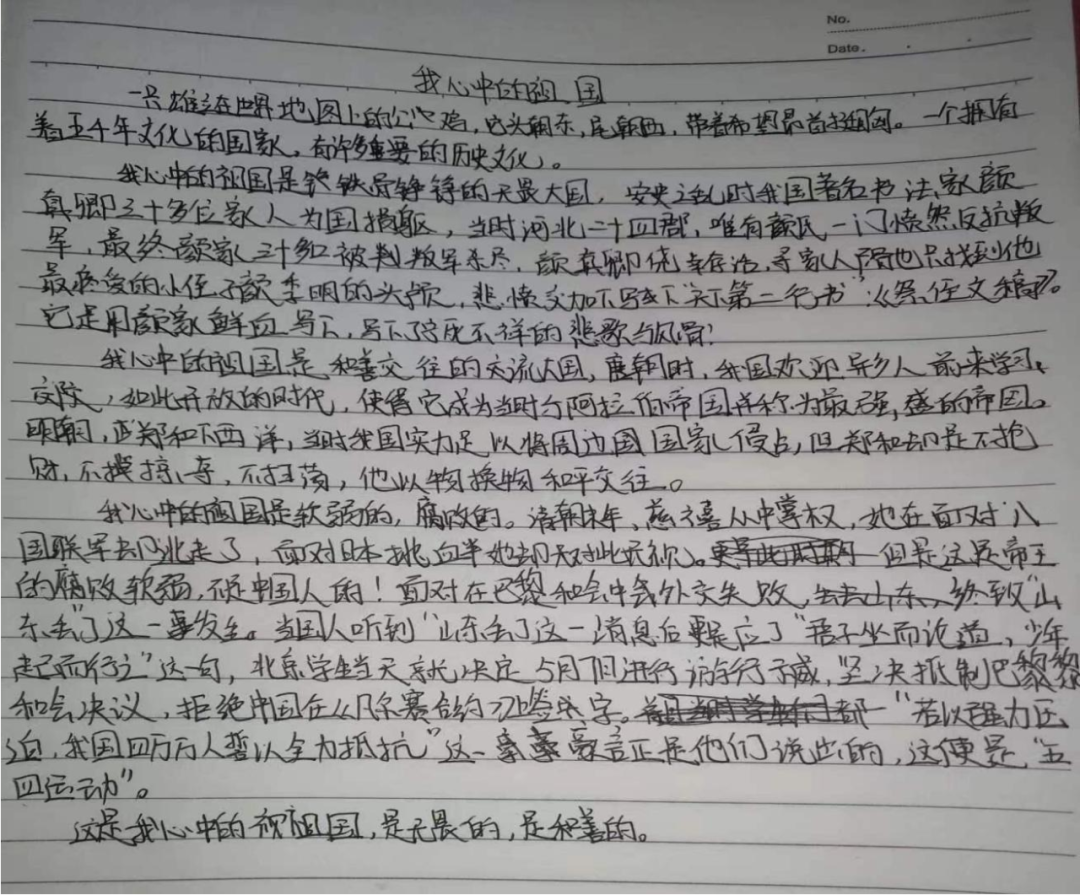 No.
Date.
我心中的祖国
一只雄立在世界地图上的公鸡,它头朝东,尾朝西,带着希望昂首挺胸。一个拥有
着五千年文化的国家,有许多重要的历史文化。
我心中的祖国是铁骨铮铮的无畏大国,安史之乱时我国著名书法家颜
真卿三十多位家人为国捐躯,当时河北二十四郡,唯有颜氏一门愤然反抗叛
军,最终颜家三十多口被判叛军杀尽,颜真卿侥幸存活,寻家人尸骨也只找到他
最疼爱的小侄子颜季明的头颅,悲愤交加下写下"天下第二行书"《祭侄文稿》。
它是用颜家鲜血写下,写下了宁死不祥的悲歌与风骨!
我心中的祖国是和善交往的交流大国,唐朝时,我国欢迎异乡人前来学习、
交际,如此开放的时代,使得它成为当时与阿拉伯帝国并称为最强盛的帝国。
明朝,郑和下西洋,当时我国实力足以将周边国国家侵占,但郑和却是不抢
财,不掠夺,不扫荡,他以物换物和平交往。
我心中的祖国是软弱的,腐败的。清朝末年,慈禧从中掌权,她在面对八
国联军却逃走了,面对日本挑衅她却对此无视。但是这是帝王
的腐败软弱,不是中国人的!面对在巴黎和会中我外交失败,终致"山
东丢了"这一事发生。当国人听到"山东丢了这一消息后更是应了"君子坐而论道,少年
起而行之"这一句,北京学生当天就决定5月7日进行游行示威,坚决抵制巴黎
和会决议,拒绝中国在凡尔赛合约上签字。"若以强力压
迫,我国四万万人誓以全力抵抗"这一豪言正是他们说出的,这便是"五
四运动"。
这是我心中的祖国,是无畏的,是和善的。